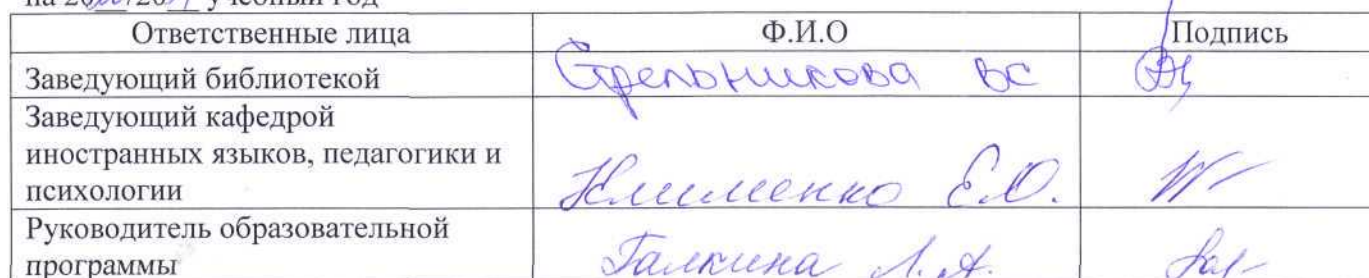 учебный год
Ответственные лица Ф.И.О Подпись
Заведующий библиотекой Стрельникова ВС
Заведующий кафедрой
иностранных языков, педагогики и
психологии Клименко Е.Ю.
Руководитель образовательной
программы Галкина Л.А.